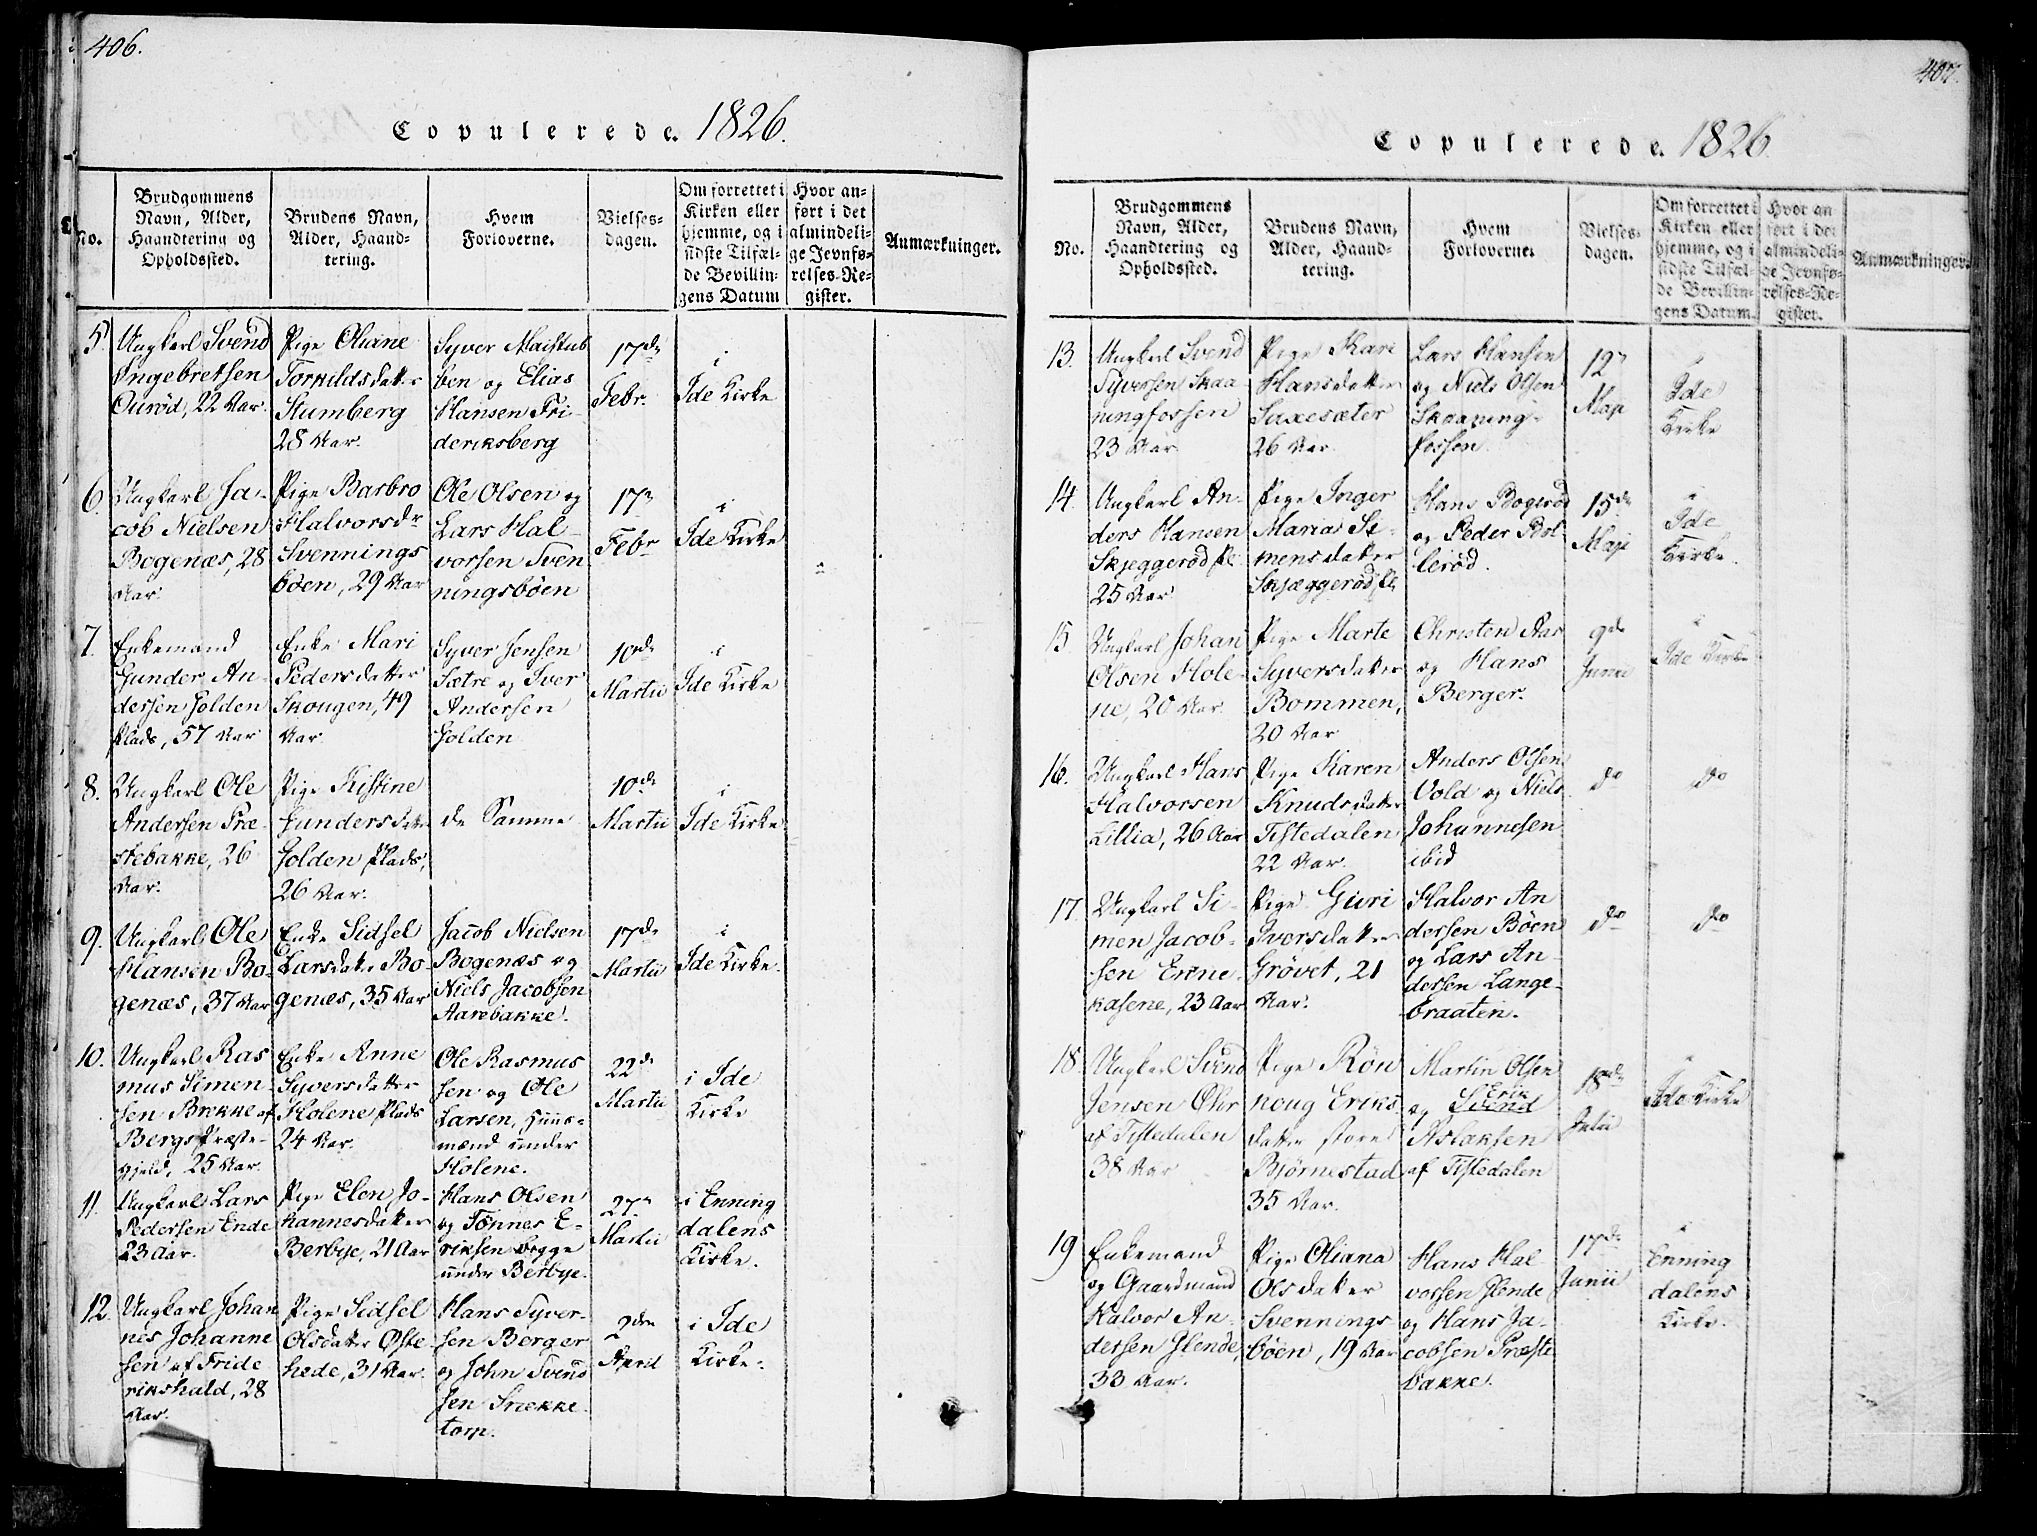 406.
Copulerede. 1826.
No.
Brudgommens
Navn, Alder,
Haandtering og
Opholdssted.
Brudens Navn,
Alder, Haand-
tering.
Hvem
Forloverne.
Vielses-
dagen.
Om forrettet i
Kirken eller
hjemme, og i
sidste Tilfæl-
de Bevillin-
gens Datum
Hvor an-
ført i det
almindeli-
ge Jevnfø-
relses-Re-
gister.
Anmærkninger.
5.
Ungkarl Svend
Ingebretsen
Ourød, 22 Aar.
Pige Oliane
Torkildsdatter
Stumberg
28 Aar.
Syver
og Elias
Hansen Fri-
deriksberg
17de
Febr.
i
Ide Kirke
6.
Ungkarl Ja-
cob Nielsen
Bogenæs, 28
Aar.
Pige Barbro
Halvorsdr
Svennings
böen, 29 Aar
Ole Olsen og
Lars Hal-
vorsen Sven
ningsböen
17de
Febr
i
Ide Kirke
7.
Enkemand
Gunder An-
dersen Holden
Plads, 57 Aar
Enke Mari
Pedersdatter
Skougen, 49
Aar
Syver Jensen
Sætre og Iver
Andersen
Holden
10de
Martii
i
Ide Kirke
8.
Ungkarl Ole
Andersen Præ-
stebakke, 26
Aar.
Pige Kistine
Gundersdatter
Holden Plads,
26 Aar.
de Samme
10de
Martii
i
Ide Kirke
9.
Ungkarl Ole
Hansen Bo-
genæs, 37 Aar
Enke Sidsel
Larsdatter Bo-
genæs, 35 Aar
Jacob Nielsen
Bogenæs og
Niels Jacobsen
Aarebakke.
17de
Martii
i
Ide Kirke.
10.
Ungkarl Ras
mus Simen-
sen Brekke af
Bergs Præste-
gjeld, 25 Aar.
Enke Anne
Syversdatter
Holene Plads
24 Aar.
Ole Rasmus
sen og Ole
Larsen, Huus-
mænd under
Holene.
22de
Martii
i Ide
Kirke
11.
Ungkarl Lars
Pedersen Ende
23 Aar.
Pige Elen Jo-
hannesdatter
Berbye, 21 Aar
Hans Olsen
og Tönnes E-
riksen begge
under Berbye.
27de
Martii
i Enning
dalens
Kirke.
12.
Ungkarl Johan
nes Johanne
sen af Fride
rikshald, 28
Aar.
Pige Sidsel
Olsdatter Øste
hede, 31 Aar.
Hans Syver-
sen Berger
og John Svend
sen Snekke-
torp.
2den
April
i Ide
Kirke.
407.
Copulerede. 1826.
No.
Brudgommens
Navn, Alder,
Haandtering og
Opholdssted.
Brudens Navn,
Alder, Haand-
tering.
Hvem
Forloverne.
Vielses-
dagen.
Om forrettet i
Kirken eller
hjemme, og i
sidste Tilfæl-
de Bevillin-
gens Datum.
Hvor an
ført i det
almindeli-
ge Jevnfø-
relses-Re-
gister.
Anmærkninger.
13.
Ungkarl Svend
Syversen Skaa
ningfossen
23 Aar
Pige Kari
Hansdatter
Saxesæter
26 Aar.
Lars Hansen
og Niels Olsen
Skaaning-
fossen.
12te
Maji
i
Ide
Kirke
14.
Ungkarl An-
ders Hansen
Skjeggerød Pl.
25 Aar
Pige Inger
Maria Si-
mensdatter
Skjæggerød Pl.
Hans Bogerød
og Peder Bol-
lerød.
15de
Maji
i
Ide
Kirke.
15
Ungkarl Johan
Olsen Hole-
ne, 20 Aar.
Pige Marte
Syversdatter
Bommen,
20 Aar
Christen Aas
og Hans
Berger.
9de
Junii
i
Ide Kirke
16.
Ungkarl Hans
Halvorsen
Lillia, 26 Aar
Pige Karen
Knudsdatter
Tistedalen
22 Aar.
Anders Olsen
Vold og Niels
Johannesen
ibid
do
do
17
Ungkarl Si-
men Jacob-
sen Enne-
kasene, 23 Aar
Pige Guri
Iversdatter
Grövet, 21
Aar.
Halvor An
dersen Böen
og Lars An-
dersen Lange-
braaten.
do
do
18
Ungkarl Svend
Jensen Öhr
af Tistedalen
38 Aar
Pige Rön
noug Eriks
datter store
Björnestad
35 Aar.
Martin Olsen
og Svend Erik
Aslaksen
af Tistedalen
18de
Julii
i
Ide Kirke
19
Enkemand
og Gaardmand
Halvor An-
dersen Hende,
33 Aar.
Pige Oliana
Olsdatter
Svennings
böen, 19 Aar
Hans Hal-
vorsen Hende
og Hans Ja-
cobsen Præste
bakke.
17de
Junii
i
Enning
dalens
Kirke.